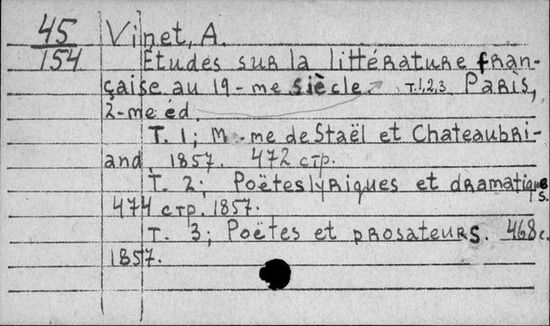 45 Vinet, A.
154 Études sur la littérature fran-
çaise au 19-me siècle. T.1,2,3 Paris,
2-me éd.
T. 1; M-me de Staël et Chateaubri-
and. 1857. 472 стр.
T. 2; Poëtes lyriques et dramatiques.
474 стр. 1857.
T. 3; Poëtes et prosateurs. 468 с.
1857.